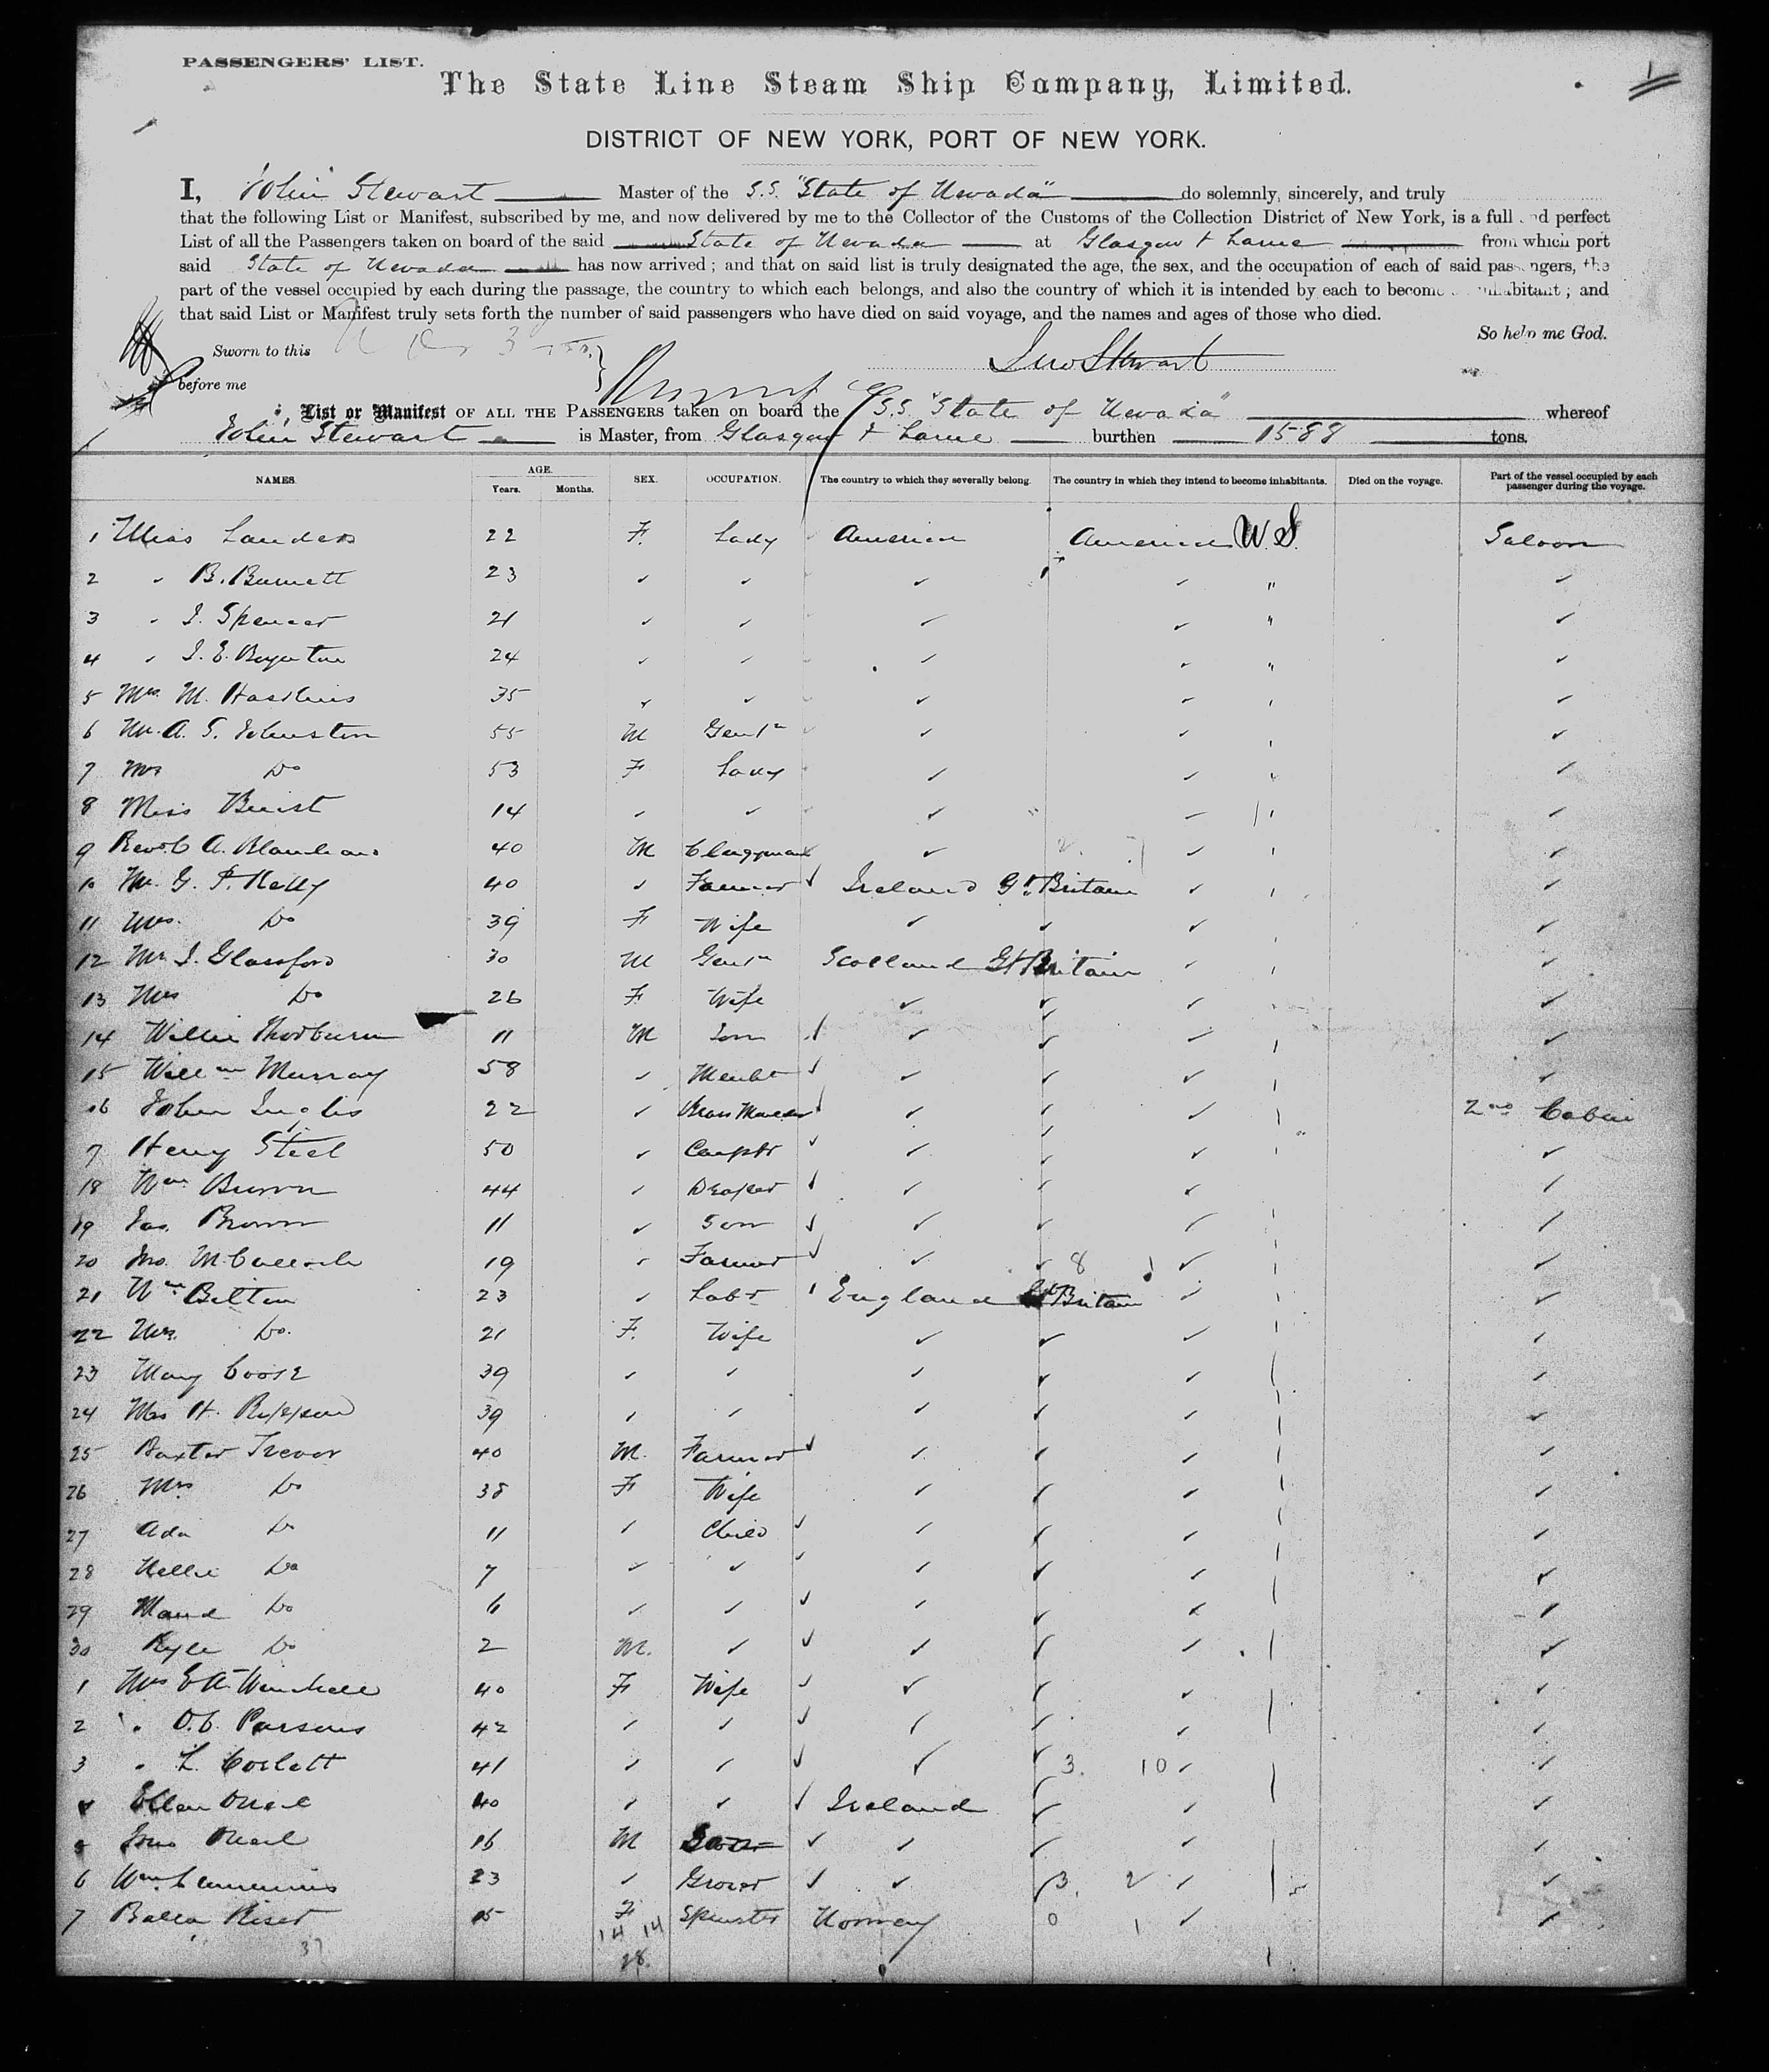 PASSENGERS' LIST.
The State Line Steam Ship Company, Limited.
DISTRICT OF NEW YORK, PORT OF NEW YORK.
I, John Stewart Master of the S.S. "State of Nevada" do solemnly, sincerely, and truly
that the following List or Manifest, subscribed by me, and now delivered by me to the Collector of the Customs of the Collection District of New York, is a full and perfect
List of all the Passengers taken on board of the said State of Nevada at Glasgow & Larne from which port
said State of Nevada has now arrived; and that on said list is truly designated the age, the sex, and the occupation of each of said passengers, the
part of the vessel occupied by each during the passage, the country to which each belongs, and also the country of which it is intended by each to become inhabitant; and
that said List or Manifest truly sets forth the number of said passengers who have died on said voyage, and the names and ages of those who died.
So help me God.
Sworn to this
Jno Stewart
before me
List or Manifest OF ALL THE PASSENGERS taken on board the S.S. "State of Nevada" whereof
John Stewart is Master, from Glasgow & Larne burthen 1588 tons.
NAMES. AGE. Years. Months. SEX. OCCUPATION. The country to which they severally belong. The country in which they intend to become inhabitants. Died on the voyage. Part of the vessel occupied by each passenger during the voyage.
1 Miss Landers 22 F. Lady America America U.S. Saloon
2 " B. Burnett 23 ✓ ✓ ✓ ✓ " ✓
3 " J. Spencer 21 ✓ ✓ ✓ ✓ " ✓
4 " J. E. Boynton 24 ✓ ✓ ✓ ✓ " ✓
5 Mrs. M. Haskins 35 ✓ ✓ ✓ ✓ ✓
6 Mr. A. S. Johnston 55 M Gentn ✓ ✓ ✓
7 Mrs Do 53 F Lady ✓ ✓ ✓
8 Miss Buist 14 ✓ ✓ ✓ ✓ ✓
9 Revd. A. 40 M Clergyman ✓ ✓ ✓
10 Mr. G. P. Kelly 40 ✓ Farmer Ireland Gt. Britain ✓ ✓
11 Mrs. Do 39 F Wife ✓ ✓ ✓ ✓
12 Mr. J. Glassford 30 M Gentn Scotland Gt Britain ✓ ✓
13 Mrs Do 26 F Wife ✓ ✓ ✓ ✓
14 Willie Thorburn 11 M Son ✓ ✓ ✓ ✓
15 Willm Murray 58 ✓ Mercht ✓ ✓ ✓ ✓
16 John Inglis 22 ✓ Brass ✓ ✓ ✓ 2nd Cabin
7 Henry Steel 50 ✓ Carptr ✓ ✓ ✓ ✓
18 Wm Brown 44 ✓ Draper ✓ ✓ ✓ ✓
19 Jas. Brown 11 ✓ Son ✓ ✓ ✓ ✓
20 Jno. McCulloch 19 ✓ Farmer ✓ ✓ 8 1 ✓ ✓
21 Wm Bilton 23 ✓ Labr England Gt Britain ✓ ✓
22 Mrs. Do. 21 F. Wife ✓ ✓ ✓ ✓
23 Mary 39 ✓ ✓ ✓ ✓ ✓ ✓
24 Mrs H. 39 ✓ ✓ ✓ ✓ ✓ ✓
25 Baxter Trevor 40 M. Farmer ✓ ✓ ✓ ✓
26 Mrs Do 38 F Wife ✓ ✓ ✓ ✓
27 Ada Do 11 ✓ Child ✓ ✓ ✓ ✓
28 Nellie Do 7 ✓ ✓ ✓ ✓ ✓ ✓
29 Maud Do 6 ✓ ✓ ✓ ✓ ✓ ✓
30 Ryle Do 2 M. ✓ ✓ ✓ ✓ ✓
1 Mrs E. A. 40 F Wife ✓ ✓ ✓ ✓
2 " O. C. Parsons 42 ✓ ✓ ✓ ✓ ✓ ✓
3 " L. Corlett 41 ✓ ✓ ✓ ✓ 3. 10 ✓ ✓
4 Ellen Oneil 40 ✓ ✓ Ireland ✓ ✓ ✓
5 Oneil 16 M Son ✓ ✓ ✓ ✓
6 Wm Cummins 23 ✓ Grocer ✓ 3. 2 ✓ ✓
7 15 F Spinster Norway 0 1 ✓ ✓
37 14 14
28.